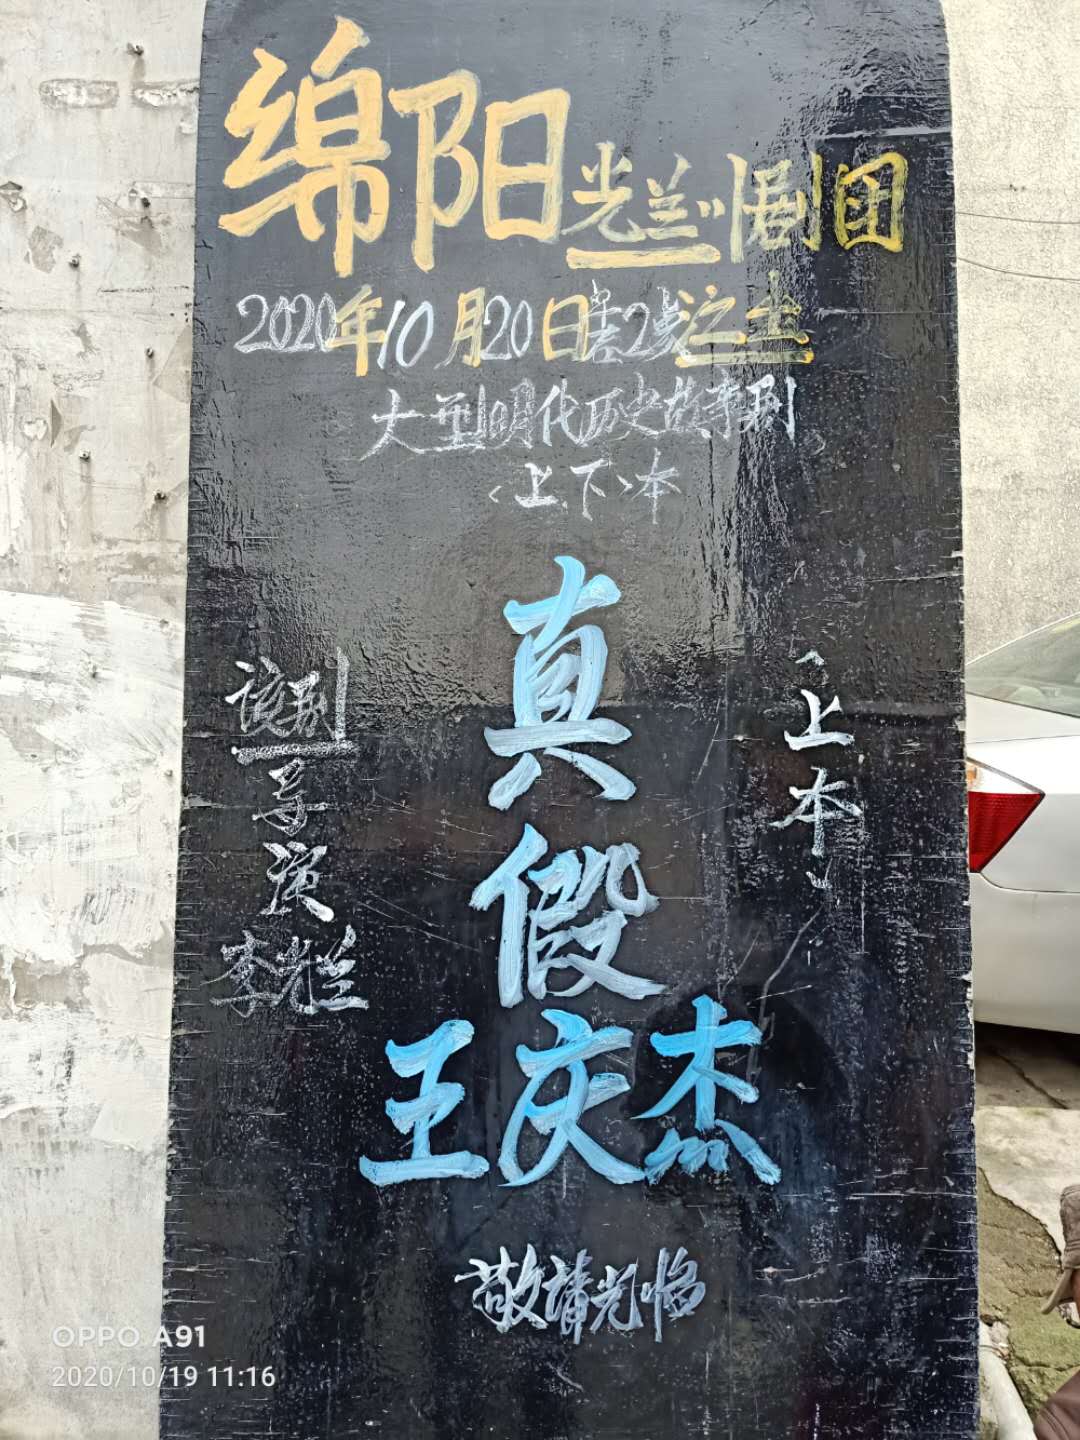 绵阳光兰川剧团
2020年10月20日 2点之土
大型明代历史故事剧
〈上.下〉本
真
假
王庆杰
〈上本〉
该剧
导演
李光兰
敬请光临
OPPO A91
2020/10/19 11:16